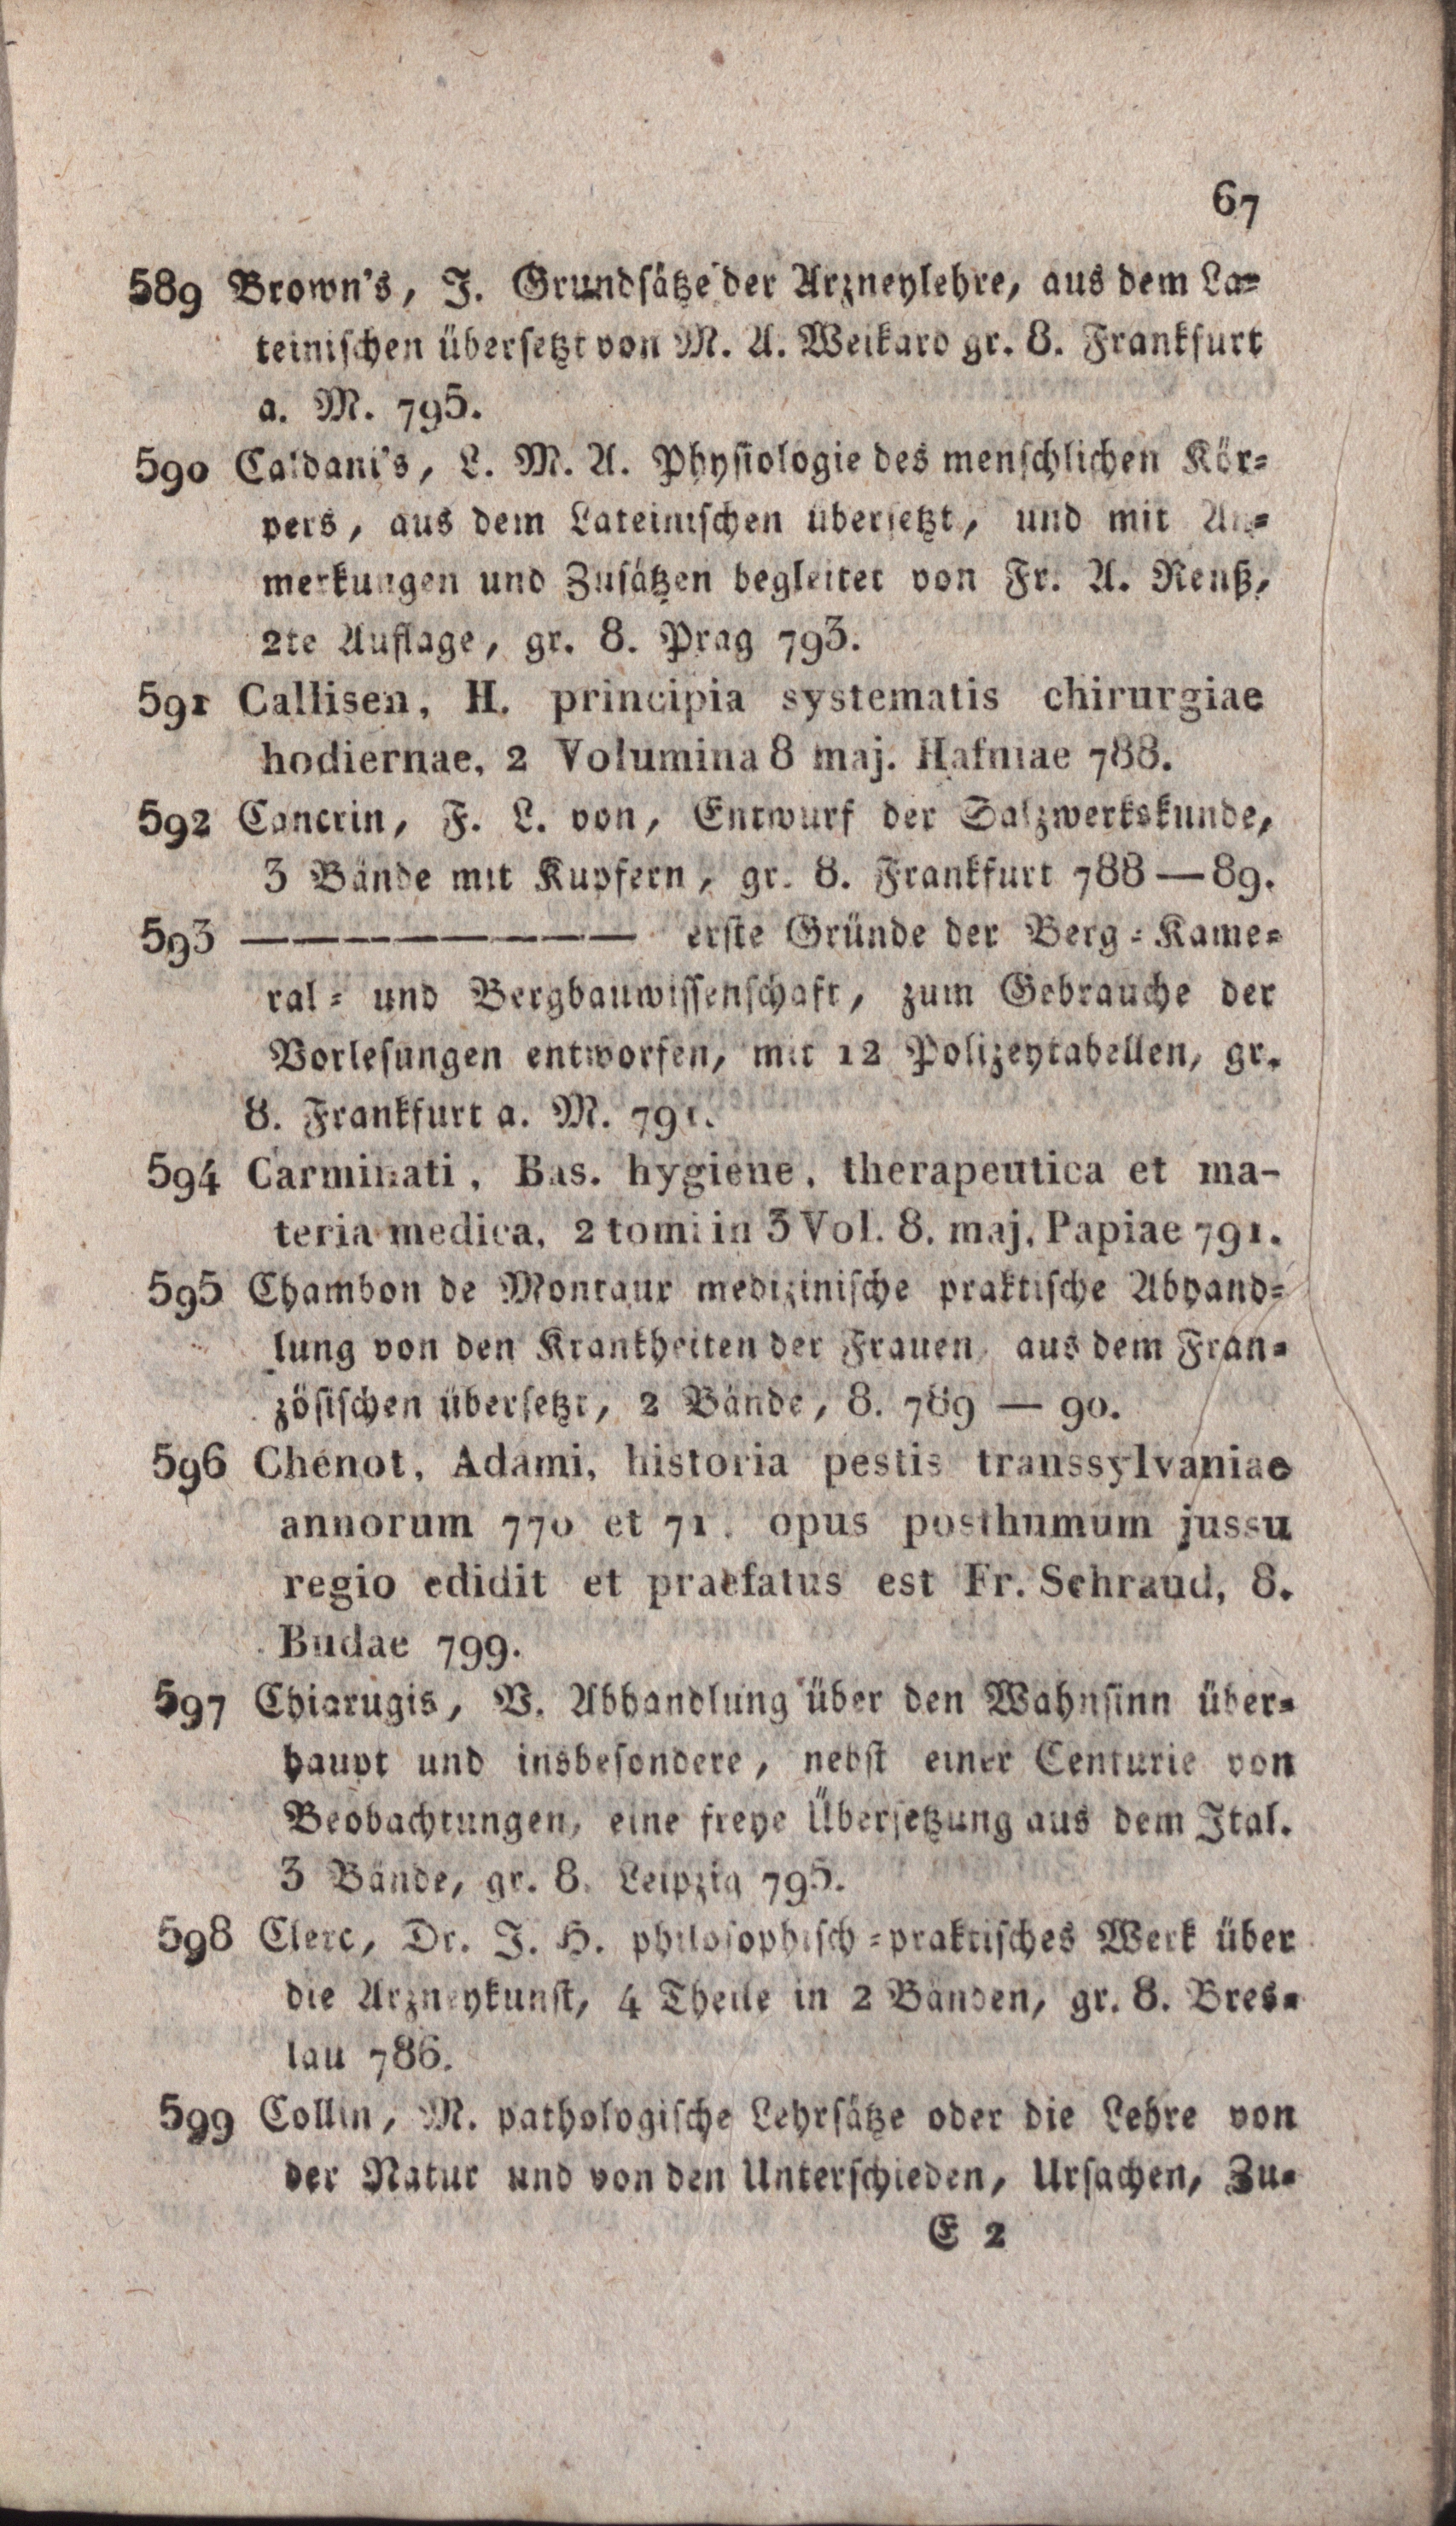 67
589 Brown's, J. Grundsätze der Arzneylehre, aus dem La-
teinischen übersetzt von M. A. Weikard gr. 8. Frankfurt
a. M. 795.
590 Caldani's, L. M. A. Physiologie des menschlichen Kör-
pers, aus dem Lateinischen übersetzt, und mit An-
merkungen und Zusätzen begleitet von Fr. A. Reuß,
2te Auflage, gr. 8. Prag 793.
591 Callisen, H. principia systematis chirurgiae
hodiernae, 2 Volumina 8 maj. Hafniae 788.
592 Cancrin, F. L. von, Entwurf der Salzwerkskunde,
3 Bände mit Kupfern, gr. 8. Frankfurt 788—89.
593 ———————— erste Gründe der Berg-Kame-
ral- und Bergbauwissenschaft, zum Gebrauche der
Vorlesungen entworfen, mit 12 Polizeytabellen, gr.
8. Frankfurt a. M. 791.
594 Carminati, Bas. hygiene, therapeutica et ma-
teria medica, 2 tomi in 3 Vol. 8. maj. Papiae 791.
595 Chambon de Montaux medizinische praktische Abhand-
lung von den Krankheiten der Frauen, aus dem Fran-
zösischen übersetzt, 2 Bände, 8. 789 — 90.
596 Chenot, Adami, historia pestis transsylvaniae
annorum 770 et 71. opus posthumum jussu
regio edidit et praefatus est Fr. Schraud, 8.
Budae 799.
597 Chiarugis, V. Abhandlung über den Wahnsinn über-
haupt und insbesondere, nebst einer Centurie von
Beobachtungen, eine freye Übersetzung aus dem Ital.
3 Bände, gr. 8. Leipzig 795.
598 Clerc, Dr. J. H. philosophisch-praktisches Werk über
die Arzneykunst, 4 Theile in 2 Bänden, gr. 8. Bres-
lau 786.
599 Collin, M. pathologische Lehrsätze oder die Lehre von
der Natur und von den Unterschieden, Ursachen, Zu-
E 2